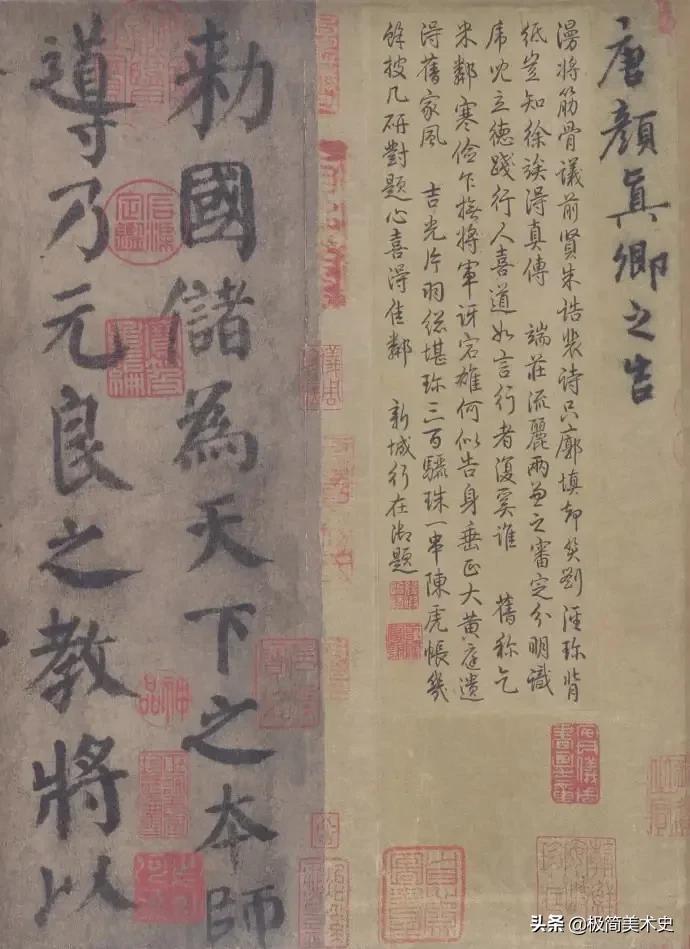 唐顏真卿之告
漫將筋骨議前賢朱誥裴詩只廓填却笑劉涇珍背
紙豈知徐得真傳 端莊流麗兩兼之審定分明識
虎兒立德踐行人喜道如言行者復奚誰 舊稱乞
米鄰寒儉乍撫將軍訝宕雄何似告身垂正大黃庭遺
得舊家風 吉光片羽總堪珍三百驪珠一串陳虎帳幾
餘披几研對題心喜得佳鄰 新城行在御題
勅國儲為天下之本師
導乃元良之教將以
石渠定鑑
寶笈重編
神品
头条 @极简美术史